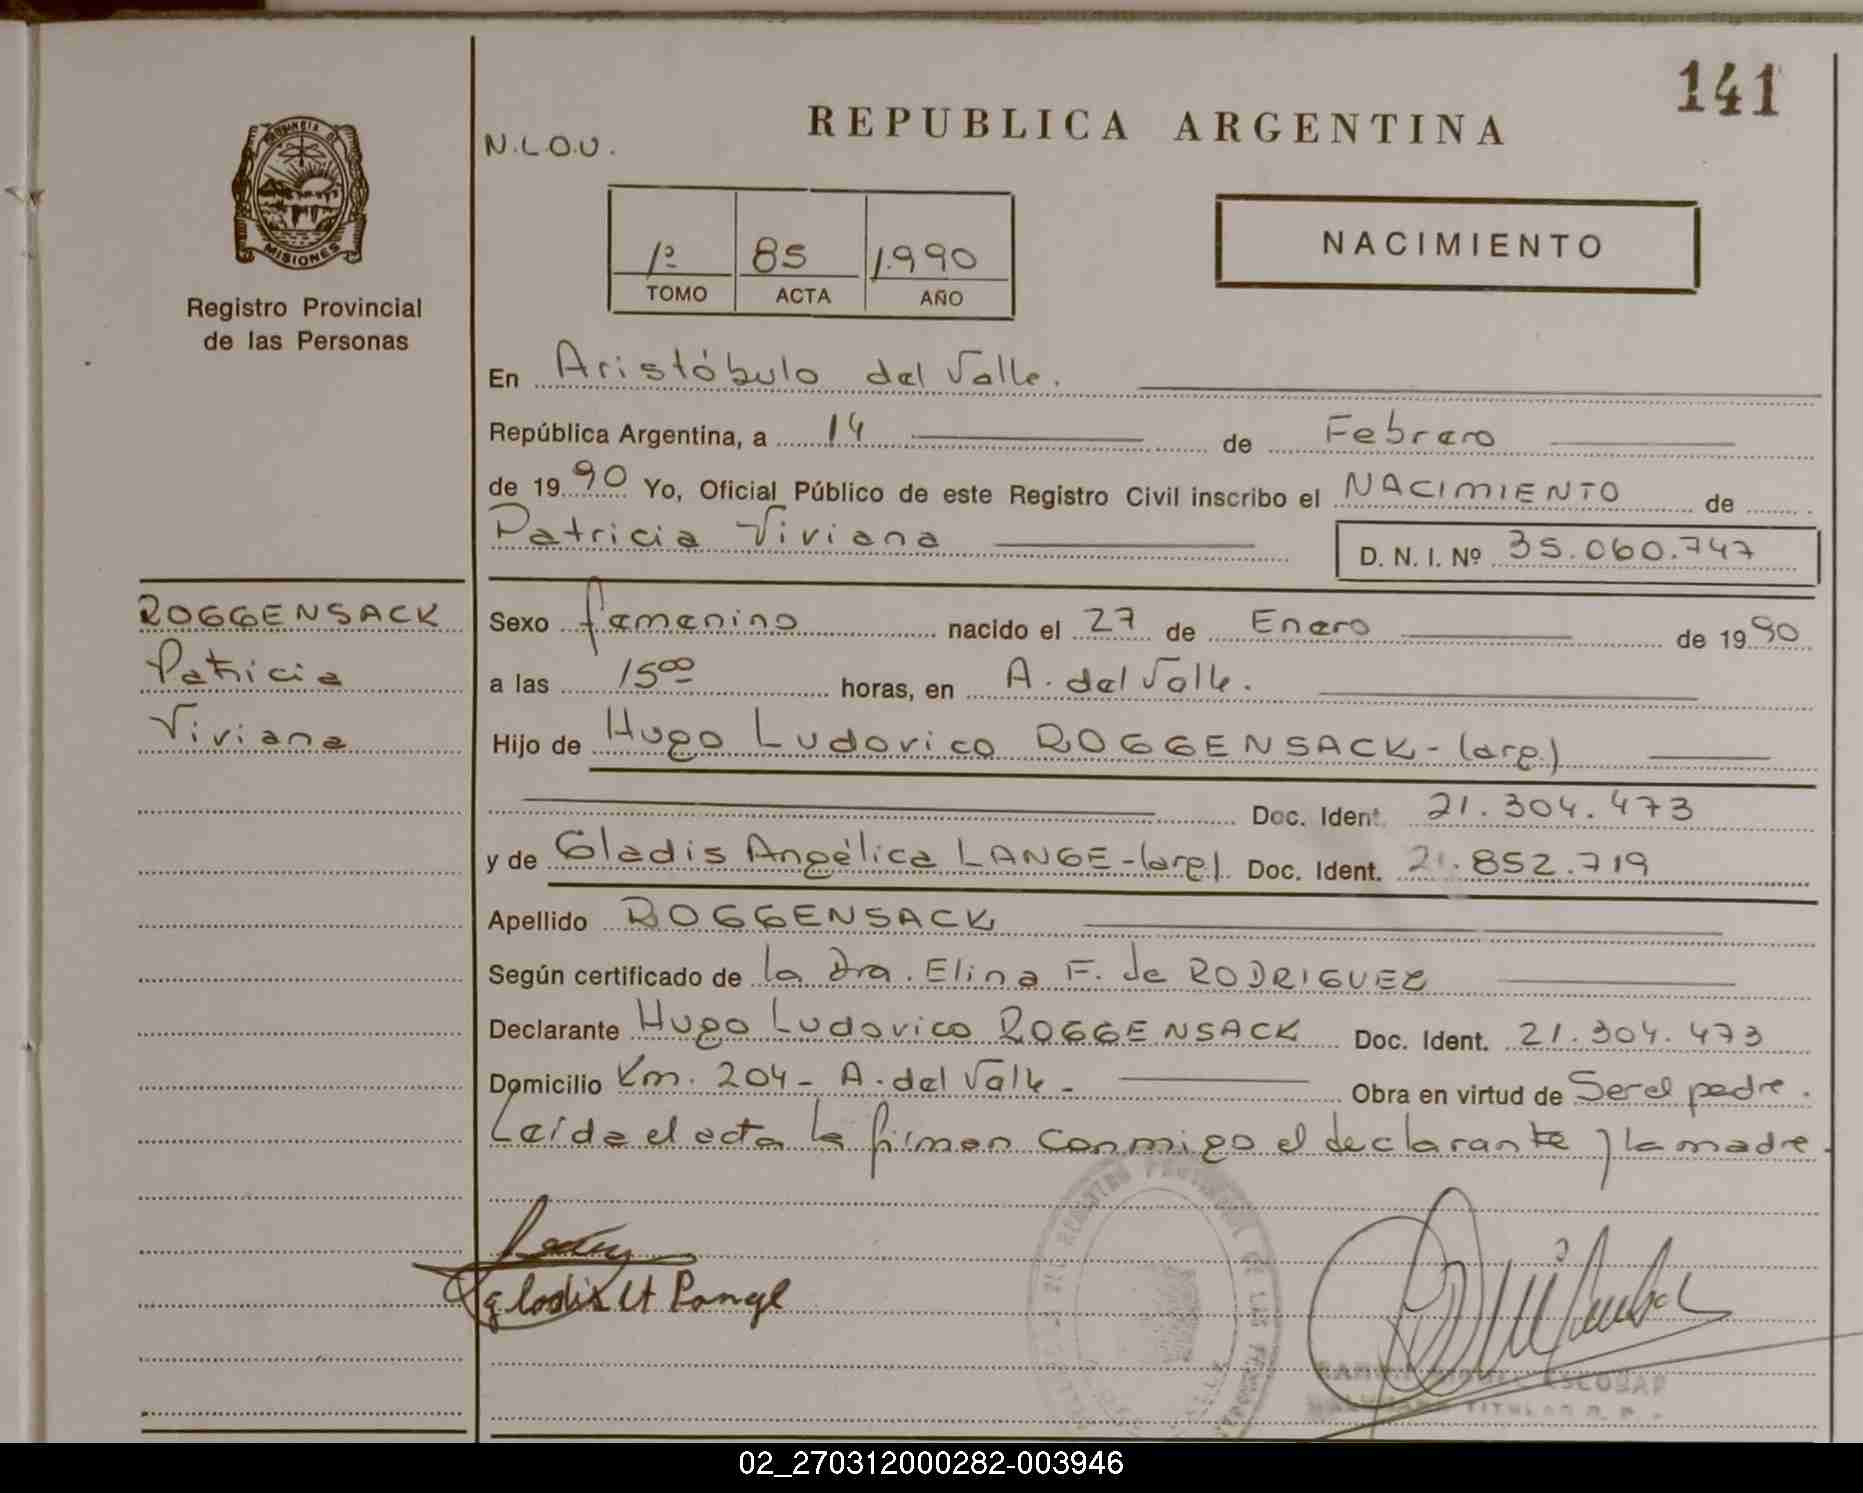 141
REPUBLICA ARGENTINA
N.L.O.U.
PROVINCIA DE
MISIONES
Registro Provincial
de las Personas
1º 85 1.990
TOMO ACTA AÑO
NACIMIENTO
En Aristóbulo del Valle.
República Argentina, a 14 de Febrero
de 19 90 Yo, Oficial Público de este Registro Civil inscribo el NACIMIENTO de
Patricia Viviana D. N. I. Nº 35.060.747
ROGGENSACK
Patricia
Viviana
Sexo femenino nacido el 27 de Enero de 19 90
a las 15 00 horas, en A. del Valle.
Hijo de Hugo Ludovico ROGGENSACK - (arg.)
Doc. Ident. 21.304.473
y de Gladis Angélica LANGE - (arg) Doc. Ident. 21.852.719
Apellido ROGGENSACK
Según certificado de la Dra. Elina F. de RODRIGUEZ
Declarante Hugo Ludovico ROGGENSACK Doc. Ident. 21.304.473
Domicilio Km. 204 - A. del Valle - Obra en virtud de Ser el padre.
Leída el acta la firman conmigo el declarante y la madre.
ESCOBAR
TITULAR R. P.
02_270312000282-003946